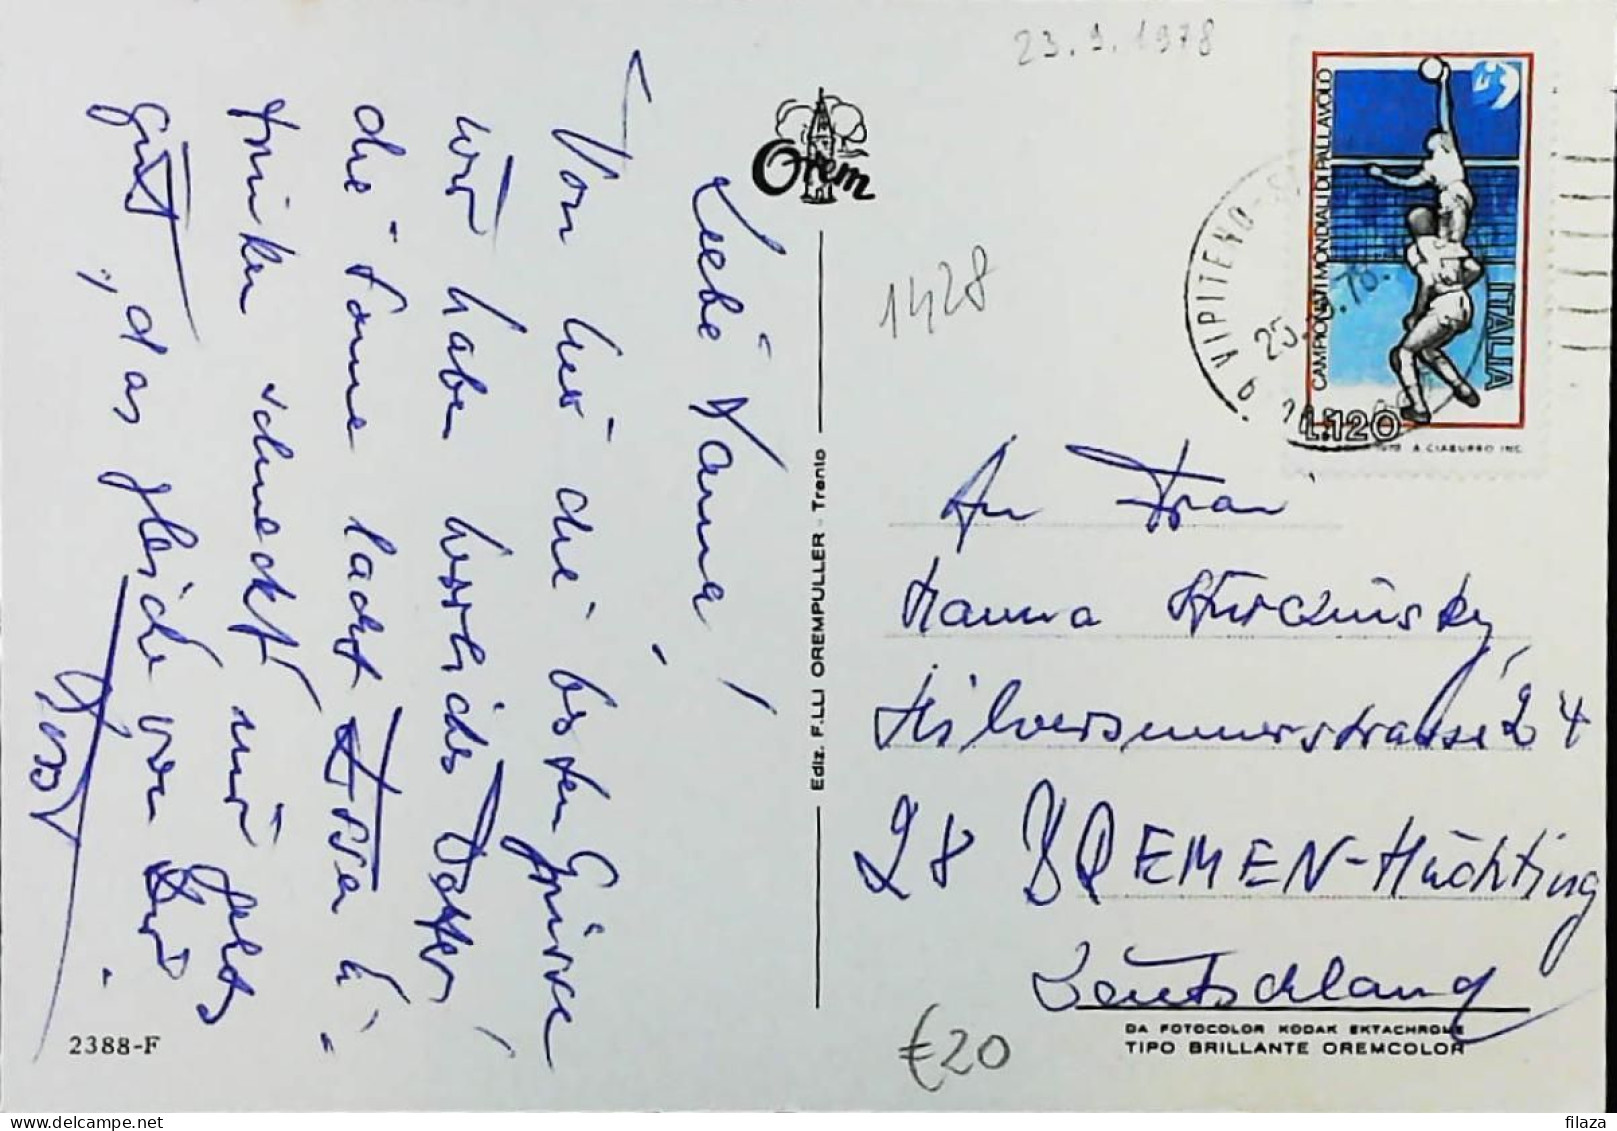 Liebe Hanna!
Von hier die besten Grüsse
wir haben herrliches Wetter,
die Sonne lacht Essen u.
trinken schmeckt mir gehts
gut, das gleiche von Dir
23.9.1978
1428
Orem
Ediz. F.LLI OREMPULLER - Trento
CAMPIONATI MONDIALI DI PALLAVOLO
ITALIA
L.120
1978 A. CIABURRO INC.
VIPITENO
78
An Frau
Hanna
Hilversumerstrasse 24
28 BREMEN-Huchting
Deutschland
DA FOTOCOLOR KODAK EKTACHROME
TIPO BRILLANTE OREMCOLOR
2388-F
€20
filaza